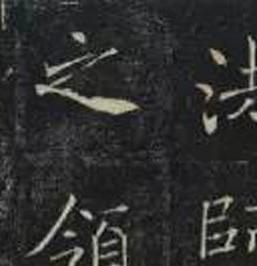 法師
之領